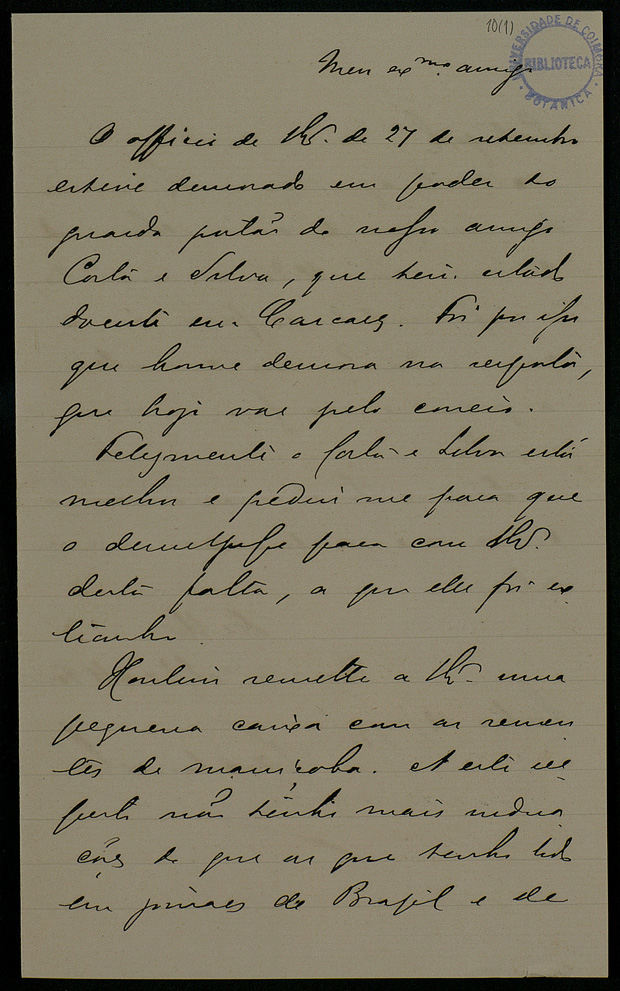 10(1)
UNIVERSIDADE DE COIMBRA
BIBLIOTECA
BOTANICA
Meu exmo. amigo
O officio de de 27 de setembro
esteve demorado em poder do
guarda portão do nosso amigo
Costa e Silva, que tem estado
doente em Cascaes. Foi por isso
que houve demora na resposta,
que hoje vae pelo correio.
Felizmente o Costa e Silva está
melhor e pediu me para que
o desculpasse para com
desta falta, a que elle foi ex
tranho.
Hontem remetti a uma
pequena caixa com as semen
tes de maniçoba. A este res
peito não tenho mais indica
ções do que as que tenho lido
em jornaes do Brazil e de